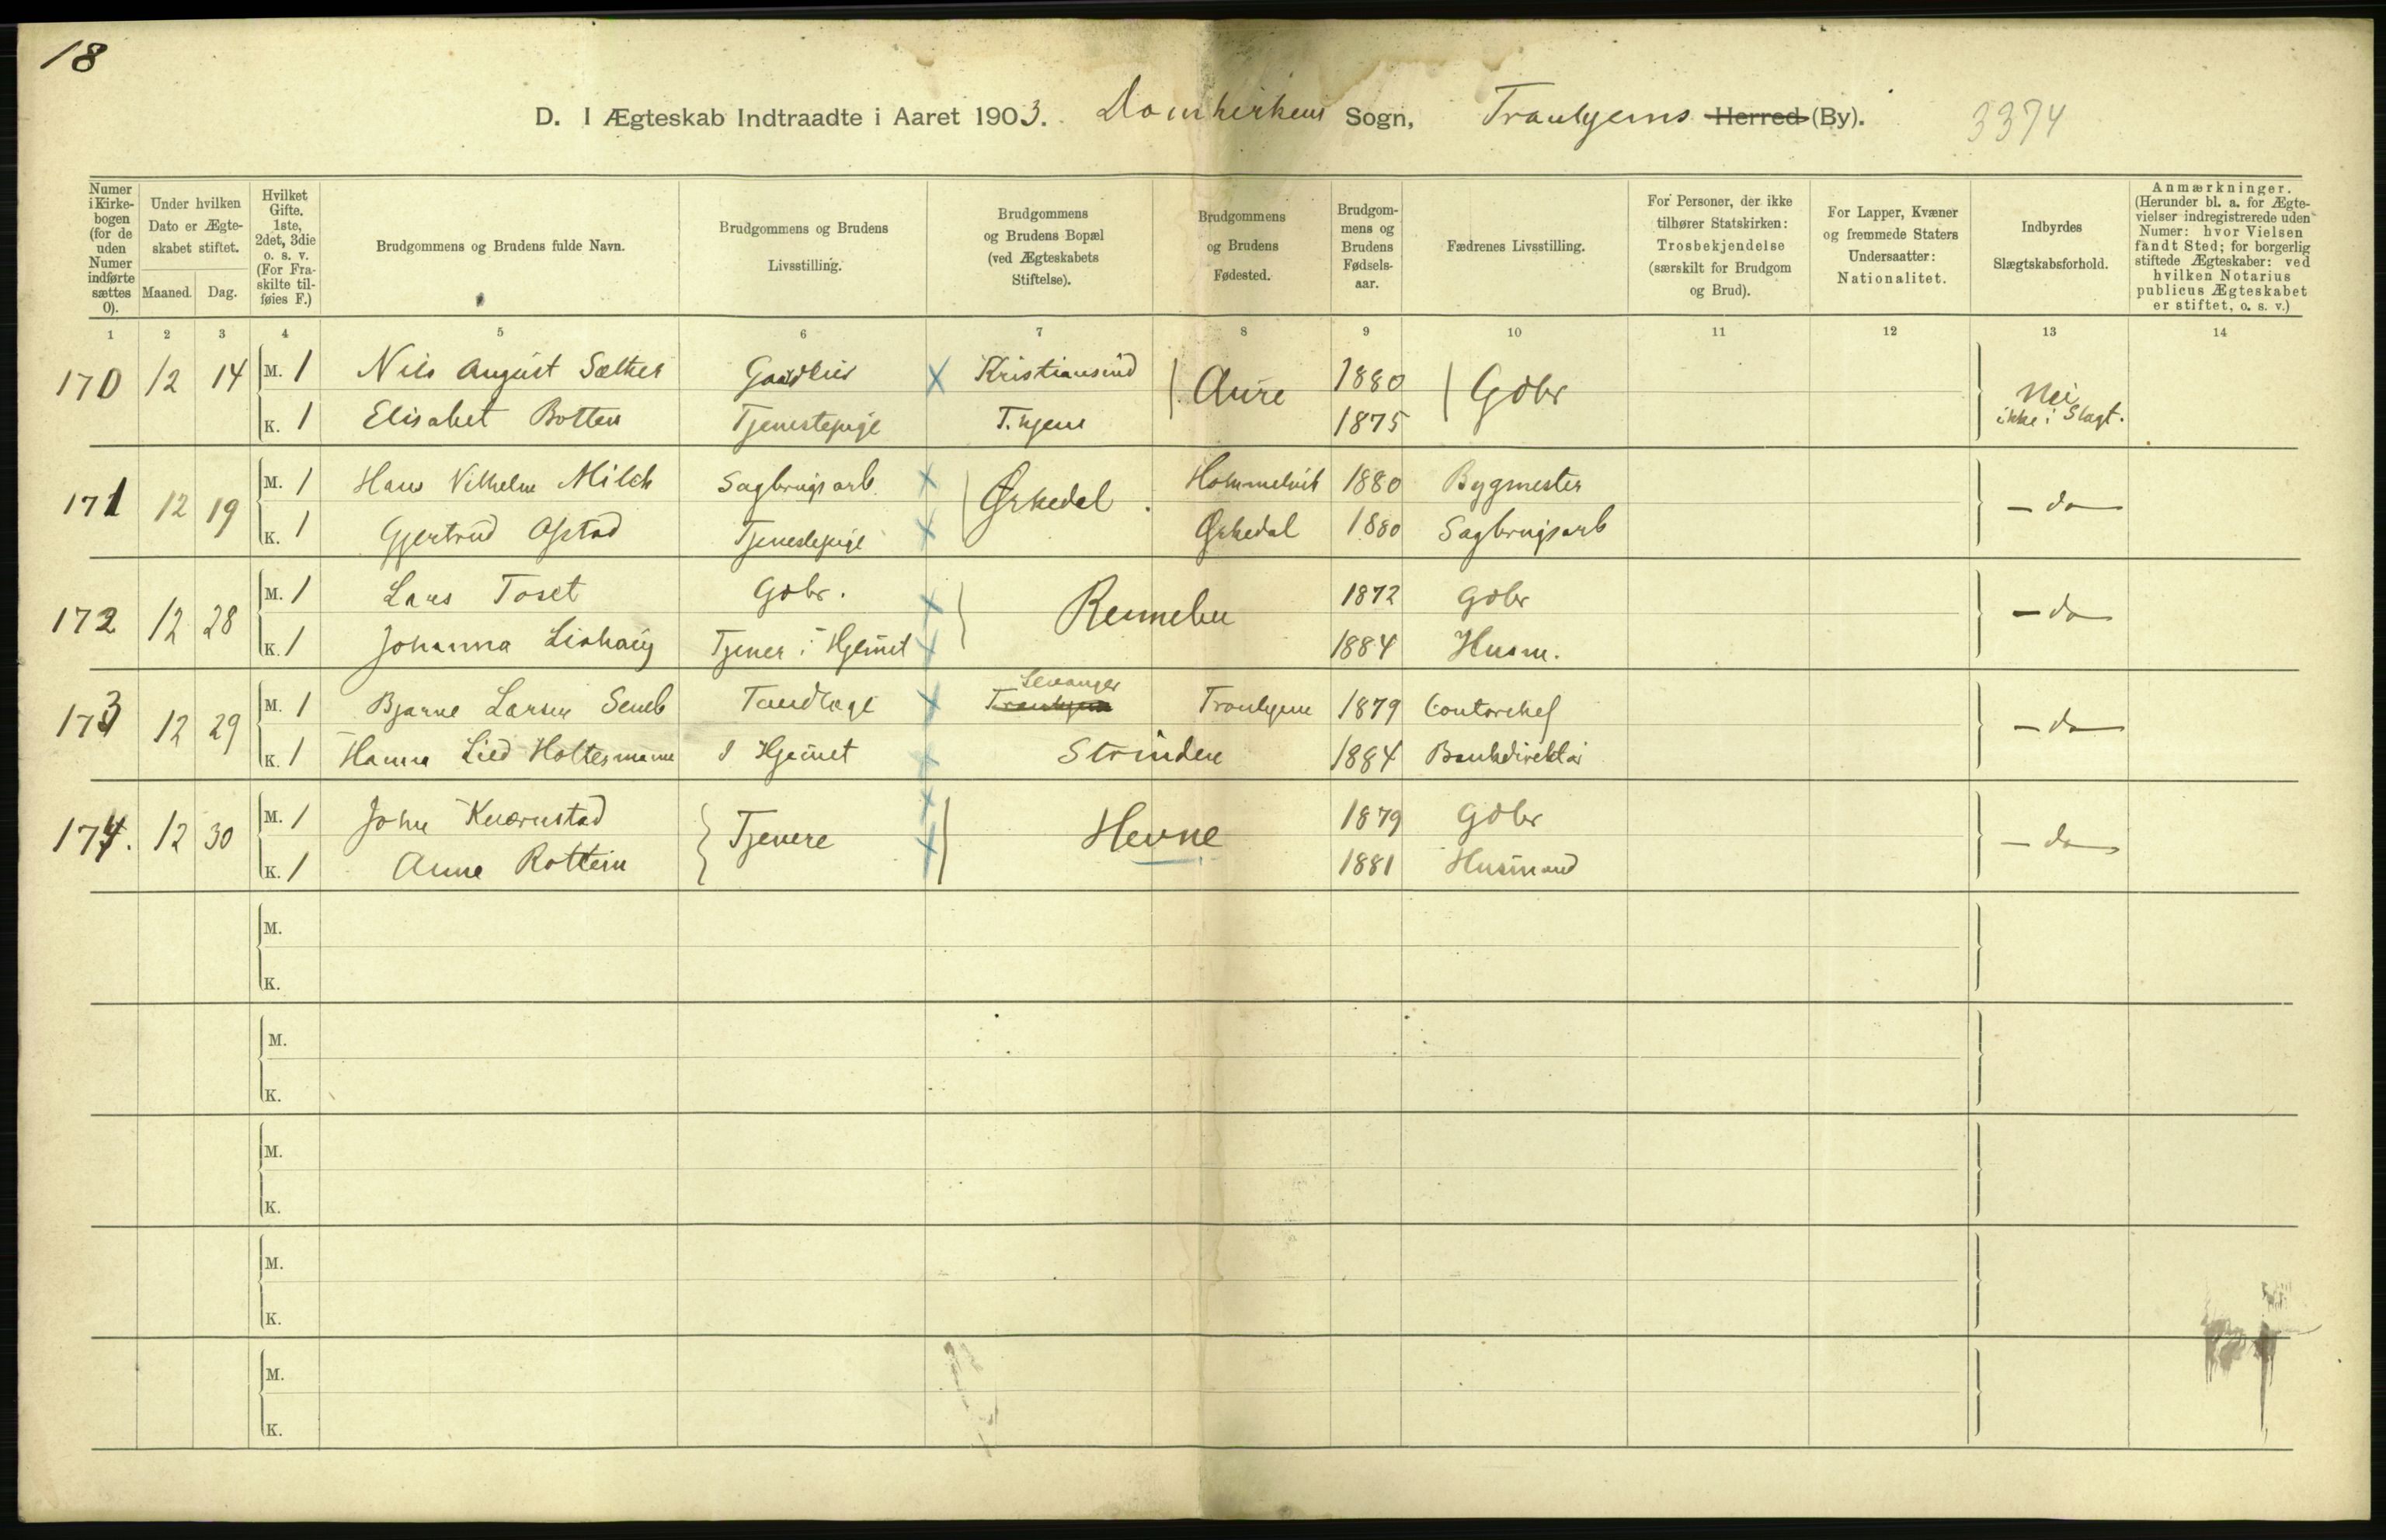 18
D. I Ægteskab Indtraadte i Aaret 1903. Domkirkens Sogn, Trondhjems Herred (By). 3374
Numer i Kirke-bogen (for de uden Numer indførte sættes 0).
Under hvilken Dato er Ægte-skabet stiftet.
Maaned. Dag.
Hvilket Gifte. 1ste, 2det, 3die o. s. v. (For Fra-skilte til-føies F.)
Brudgommens og Brudens fulde Navn.
Brudgommens og Brudens Livsstilling.
Brudgommens og Brudens Bopæl (ved Ægteskabets Stiftelse).
Brudgommens og Brudens Fødested.
Brudgom-mens og Brudens Fødsels-aar.
Fædrenes Livsstilling.
For Personer, der ikke tilhører Statskirken: Trosbekjendelse (særskilt for Brudgom og Brud).
For Lapper, Kvæner og fremmede Staters Undersaatter: Nationalitet.
Indbyrdes Slægtskabsforhold.
Anmærkninger. (Herunder bl. a. for Ægte-vielser indregistrerede uden Numer: hvor Vielsen fandt Sted; for borgerlig stiftede Ægteskaber: ved hvilken Notarius publicus Ægteskabet er stiftet, o. s. v.)
1 2 3 4 5 6 7 8 9 10 11 12 13 14
170 12 14 M. 1 Nils August Sæther x Kristiansund Aure 1880 Gdbr Nei ikke i Slægt.
K. 1 Elisabet Botten Tjenestepige T.hjem 1875
171 12 19 M. 1 Hans Vilhelm Milch Sagbrugsarb. x Ørkedal Hommelvik 1880 Bygmester — do —
K. 1 Gjertrud Opstad Tjenestepige x Ørkedal 1880 Sagbrugsarb
172 12 28 M. 1 Lars Toset Gdbr. x Rennebu 1872 Gdbr — do —
K. 1 Johanna Tjener i Hjemmet x 1884 Husm.
173 12 29 M. 1 Bjarne Larsen Semb Tandlæge x Levanger Trondhjem Trondhjem 1879 Contorchef — do —
K. 1 Hanna Lied Holtermann I Hjemmet x Strinden 1884 Bankdirektør
174. 12 30 M. 1 John Kværnstad Tjenere x Hevne 1879 Gdbr — do —
K. 1 Anne Rottem x 1881 Husmand
M.
K.
M.
K.
M.
K.
M.
K.
M.
K.